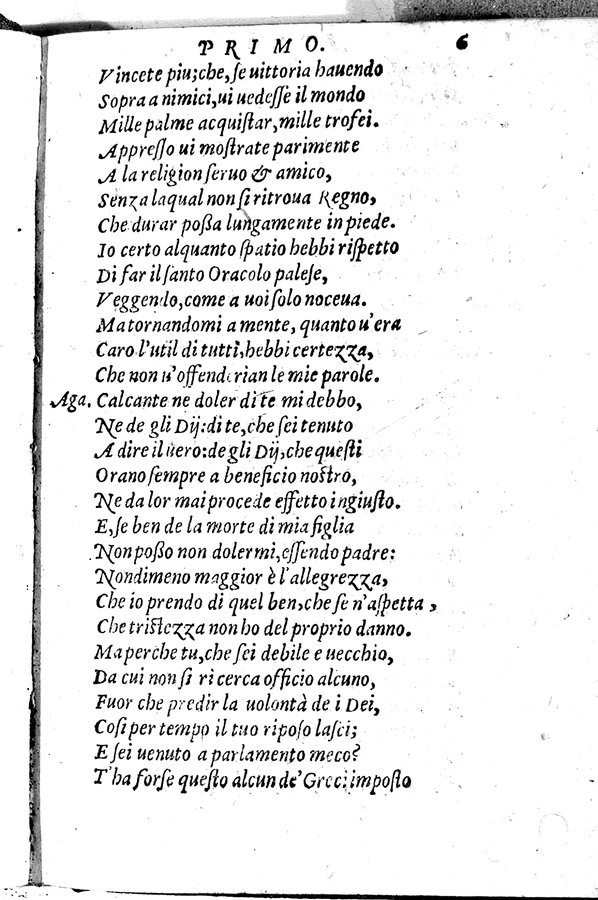 PRIMO. 6
Vincete piu; che, ſe uittoria hauendo
Sopra a nimici, ui uedeſſe il mondo
Mille palme acquiſtar, mille trofei.
Appreſſo ui moſtrate parimente
A la religion ſeruo & amico,
Senza laqual non ſi ritroua Regno,
Che durar poßa lungamente in piede.
Io certo alquanto ſpatio hebbi riſpetto
Di far il ſanto Oracolo paleſe,
Veggendo, come a uoi ſolo noceua.
Ma tornandomi a mente, quanto u'era
Caro l'util di tutti, hebbi certezza,
Che non u'offenderian le mie parole.
Aga. Calcante ne doler di te mi debbo,
Ne de gli Dij: di te, che ſei tenuto
A dire il uero: de gli Dij, che queſti
Orano ſempre a beneficio noſtro,
Ne da lor mai procede effetto ingiuſto.
E, ſe ben de la morte di mia figlia
Non poßo non dolermi, eſſendo padre:
Nondimeno maggior è l'allegrezza,
Che io prendo di quel ben, che ſe n'aſpetta,
Che triſtezza non ho del proprio danno.
Ma perche tu, che ſei debile e uecchio,
Da cui non ſi ricerca officio alcuno,
Fuor che predir la uolontà de i Dei,
Coſi per tempo il tuo ripoſo laſci;
E ſei uenuto a parlamento meco?
T'ha forſe queſto alcun de' Greci impoſto